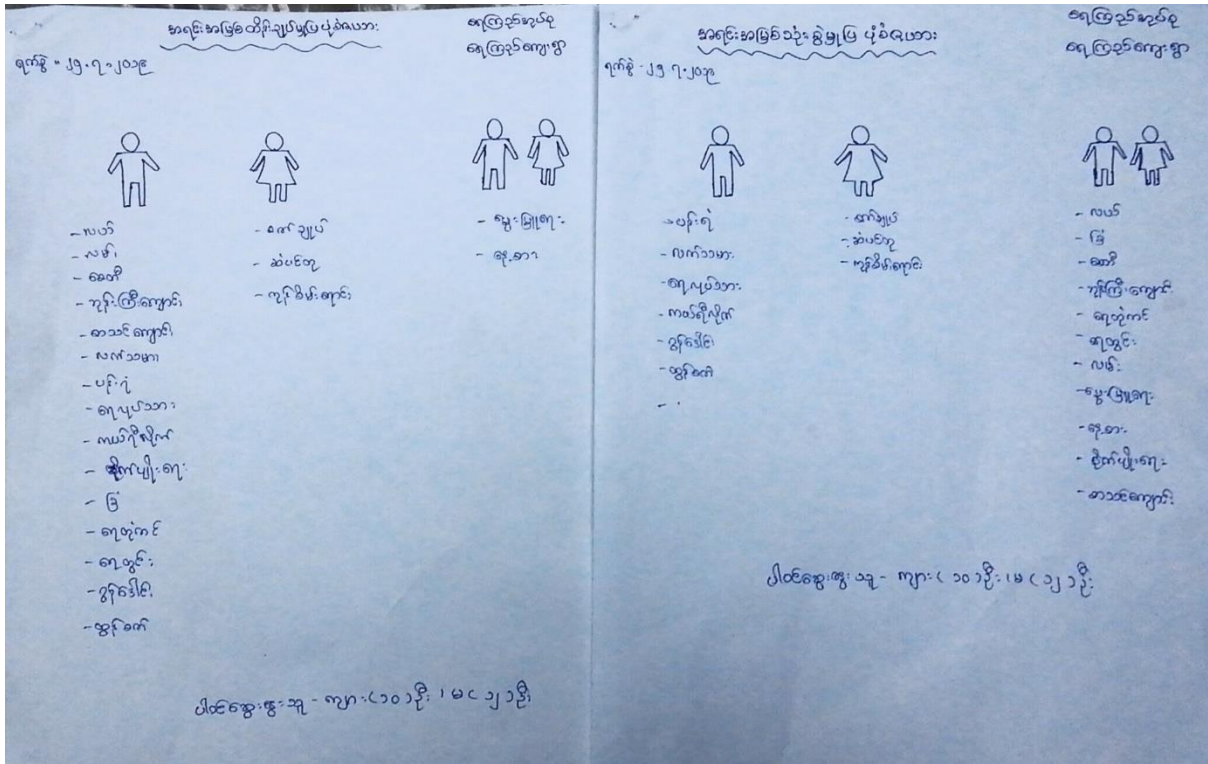 အရင်းအမြစ်ထိန်းချုပ်မှုပြပုံစံဇယား
ရေကြည်အုပ်စု
ရေကြည်ကျေးရွာ
ရက်စွဲ - ၂၅.၇.၂၀၁၉
- လယ်
- လမ်း
- စေတီ
- ဘုန်းကြီးကျောင်း
- စာသင်ကျောင်း
- လက်သမား
- ပန်းရံ
- ရေလုပ်သား
- ကယ်ရီလိုက်
- စိုက်ပျိုးရေး
- ခြံ
- ရေတုံကင်
- ရေတွင်း
- ဂွန်ဒေါင်း
- ထွန်စက်
- စက်ချုပ်
- ဆံပင်ညှပ်
- ကုန်စိမ်းရောင်း
- မွေးမြူရေး
- နေ့စား
ပါဝင်ဆွေးနွေးသူ - ကျား (၁၀) ဦး ၊ မ (၁၂) ဦး
အရင်းအမြစ်သုံးစွဲမှုပြ ပုံစံဇယား
ရေကြည်အုပ်စု
ရေကြည်ကျေးရွာ
ရက်စွဲ - ၂၅.၇.၂၀၁၉
- ပန်းရံ
- လက်သမား
- ရေလုပ်သား
- ကယ်ရီလိုက်
- ဂွန်ဒေါင်း
- ထွန်စက်
- စက်ချုပ်
- ကုန်စိမ်းရောင်း
- လယ်
- ခြံ
- စေတီ
- ဘုန်းကြီးကျောင်း
- ရေတုံကင်
- ရေတွင်း
- လမ်း
- မွေးမြူရေး
- နေ့စား
- စိုက်ပျိုးရေး
- စာသင်ကျောင်း
ပါဝင်ဆွေးနွေးသူ - ကျား (၁၀) ဦး ၊ မ (၁၂) ဦး